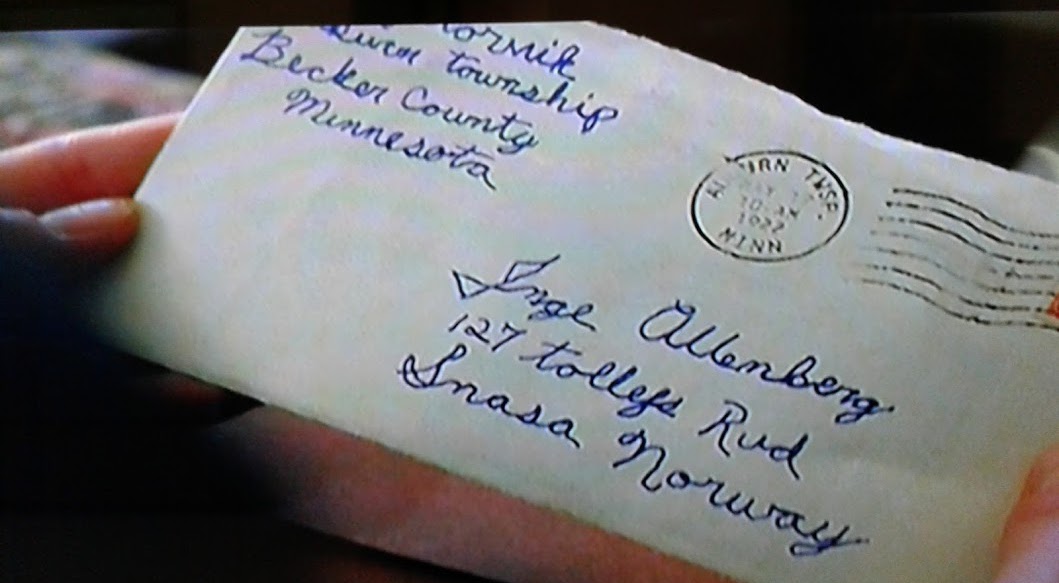 township
Becker County
Minnesota
TWSP.
10 AM
1922
MINN
Inge Altenberg
127 tollefs Rud
Snasa Norway